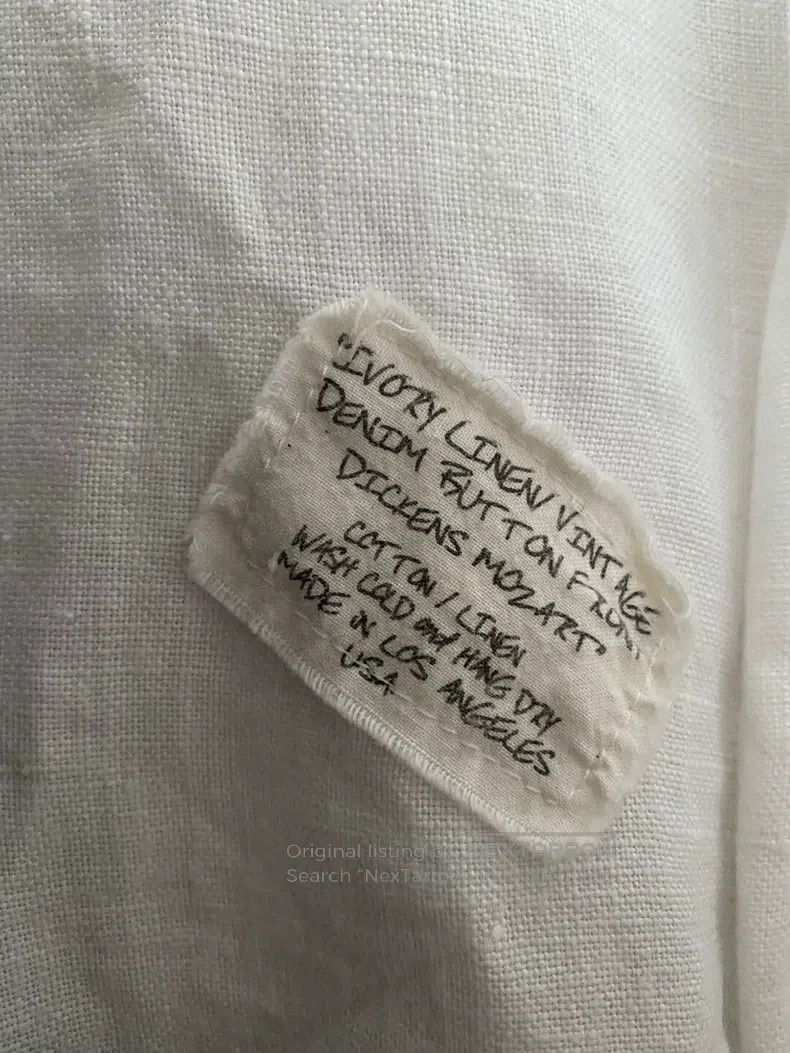 "IVORY LINEN VINTAGE
DENIM BUTTON FRONT
DICKENS MOZART"
COTTON / LINEN
WASH COLD and HANG DRY
MADE IN LOS ANGELES
USA
Original listing
Search "NexTar